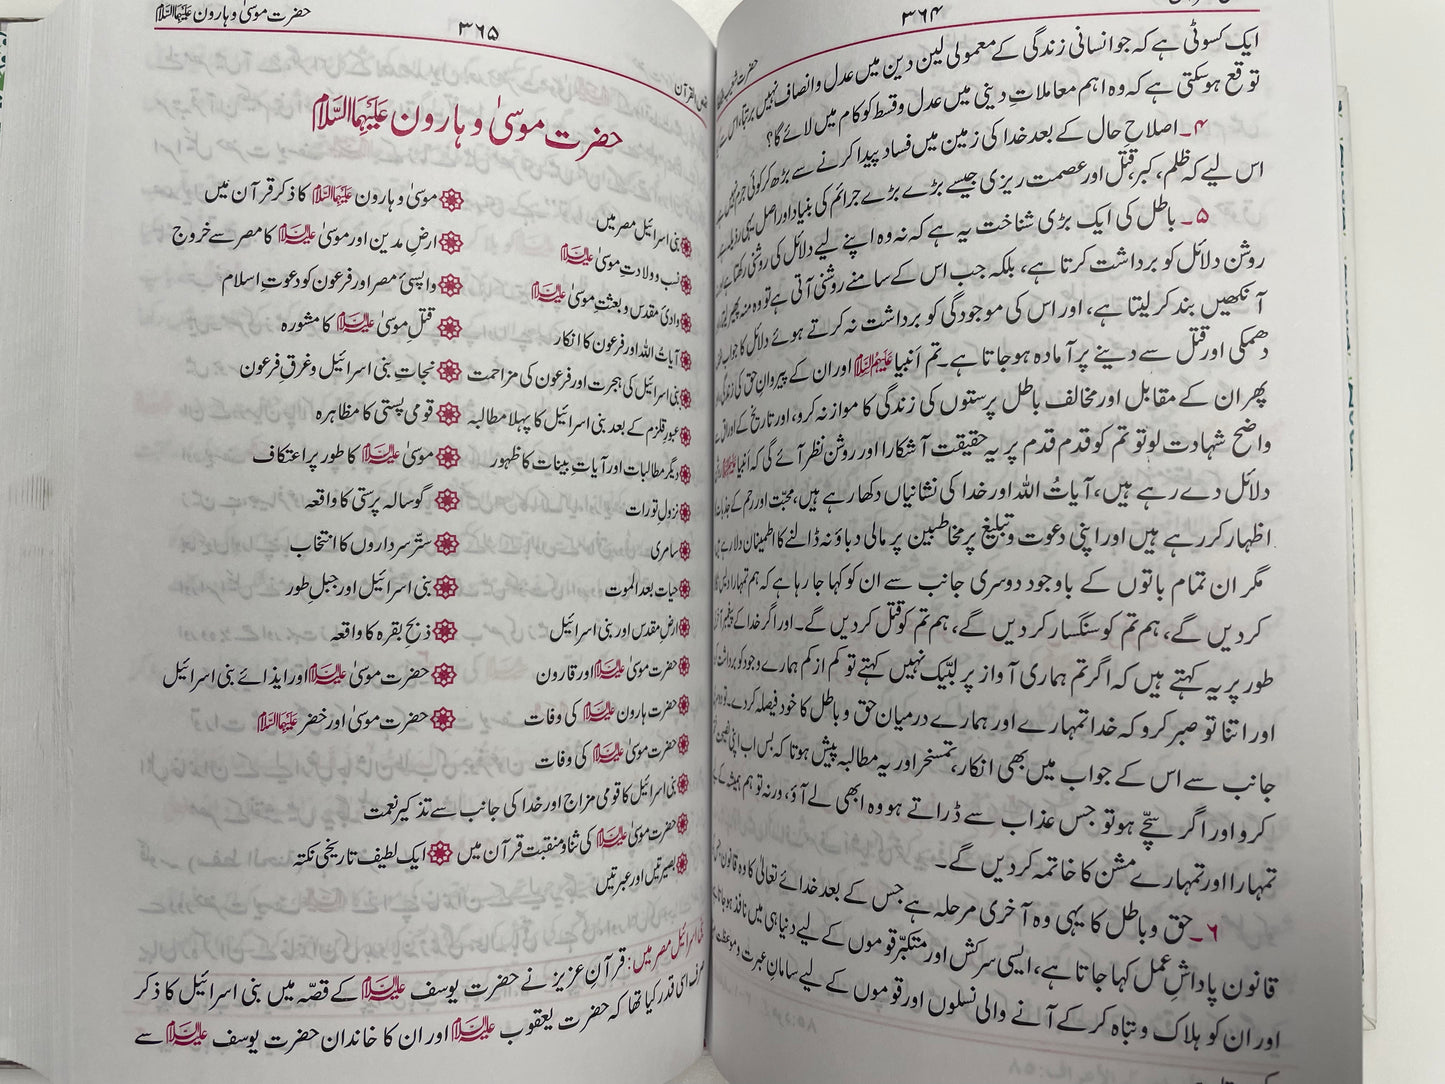 ۳۶۴
ایک کسوٹی ہے کہ جو انسانی زندگی کے معمولی لین دین میں عدل و انصاف نہیں برتتا، اس سے کیا
توقع ہوسکتی ہے کہ وہ اہم معاملاتِ دینی میں عدل و قسط کو کام میں لائے گا؟
۴۔ اصلاحِ حال کے بعد خدا کی زمین میں فساد پیدا کرنے سے بڑھ کر کوئی جرم نہیں ہے
اس لیے کہ ظلم، کبر، قتل اور عصمت ریزی جیسے بڑے بڑے جرائم کی بنیاد اور اصل یہی
۵۔ باطل کی ایک بڑی شناخت یہ ہے کہ نہ وہ اپنے لیے دلائل کی روشنی رکھتا ہے اور
روشن دلائل کو برداشت کرتا ہے، بلکہ جب اس کے سامنے روشنی آتی ہے تو وہ منہ پھیر لیتا
آنکھیں بند کرلیتا ہے، اور اس کی موجودگی کو برداشت نہ کرتے ہوئے دلائل کا جواب
دھمکی اور قتل سے دینے پر آمادہ ہوجاتا ہے۔ تم انبیا علیہم السلام اور ان کے پیروانِ حق کی زندگی
پھر ان کے مقابل اور مخالف باطل پرستوں کی زندگی کا موازنہ کرو، اور تاریخ کے اوراق سے
واضح شہادت لو تو تم کو قدم قدم پر یہ حقیقت آشکارا اور روشن نظر آئے گی کہ انبیا
دلائل دے رہے ہیں، آیاتُ اللہ اور خدا کی نشانیاں دکھا رہے ہیں، محبّت اور رحم کے جذبات کا
اظہار کررہے ہیں اور اپنی دعوت و تبلیغ پر مخاطبین پر مالی دباؤ نہ ڈالنے کا اطمینان دلا رہے ہیں
مگر ان تمام باتوں کے باوجود دوسری جانب سے ان کو کہا جا رہا ہے کہ ہم تمہارا دیس نکالا
کردیں گے، ہم تم کو سنگسار کردیں گے، ہم تم کو قتل کردیں گے۔ اور اگر خدا کے پیغمبر آخری
طور پر یہ کہتے ہیں کہ اگر تم ہماری آواز پر لبّیک نہیں کہتے تو کم از کم ہمارے وجود کو برداشت
اور اتنا تو صبر کرو کہ خدا تمہارے اور ہمارے درمیان حق و باطل کا خود فیصلہ کردے۔ تو دوسری
جانب سے اس کے جواب میں بھی انکار، تمسخر اور یہ مطالبہ پیش ہوتا کہ بس اب اپنی نصیحتیں
کرو اور اگر سچّے ہو تو جس عذاب سے ڈراتے ہو وہ ابھی لے آؤ، ورنہ تو ہم ہمیشہ کے
تمہارا اور تمہارے مشن کا خاتمہ کردیں گے۔
۶۔ حق و باطل کا یہی وہ آخری مرحلہ ہے جس کے بعد خدائے تعالیٰ کا وہ قانون جس
قانون پاداشِ عمل کہا جاتا ہے، ایسی سرکش اور متکبّر قوموں کے لیے دنیا ہی میں نافذ ہوجاتا
اور ان کو ہلاک و تباہ کرکے آنے والی نسلوں اور قوموں کے لیے سامانِ عبرت و موعظت
حضرت موسیٰ و ہارون علیہما السلام
۳۶۵
حضرت موسیٰ و ہارون علیہما السلام
موسیٰ و ہارون علیہما السلام کا ذکر قرآن میں
بنی اسرائیل مصر میں
ارضِ مدین اور موسیٰ علیہ السلام کا مصر سے خروج
نسب و ولادتِ موسیٰ علیہ السلام
واپسیٔ مصر اور فرعون کو دعوتِ اسلام
وادیٔ مقدس و بعثتِ موسیٰ علیہ السلام
قتلِ موسیٰ علیہ السلام کا مشورہ
آیاتُ اللہ اور فرعون کا انکار
نجاتِ بنی اسرائیل و غرقِ فرعون
بنی اسرائیل کی ہجرت اور فرعون کی مزاحمت
قومی پستی کا مظاہرہ
عبورِ قلزم کے بعد بنی اسرائیل کا پہلا مطالبہ
موسیٰ علیہ السلام کا طور پر اعتکاف
دیگر مطالبات اور آیاتِ بینات کا ظہور
گوسالہ پرستی کا واقعہ
نزولِ تورات
ستّر سرداروں کا انتخاب
سامری
بنی اسرائیل اور جبلِ طور
حیات بعد الموت
ذبحِ بقرہ کا واقعہ
ارضِ مقدس اور بنی اسرائیل
حضرت موسیٰ علیہ السلام اور ایذائے بنی اسرائیل
حضرت موسیٰ علیہ السلام اور قارون
حضرت موسیٰ اور خضر علیہما السلام
حضرت ہارون علیہ السلام کی وفات
حضرت موسیٰ علیہ السلام کی وفات
بنی اسرائیل کا قومی مزاج اور خدا کی جانب سے تذکیرِ نعمت
حضرت موسیٰ علیہ السلام کی ثنا و منقبت قرآن میں
ایک لطیف تاریخی نکتہ
بصیرتیں اور عبرتیں
بنی اسرائیل مصر میں: قرآنِ عزیز نے حضرت یوسف علیہ السلام کے قصّہ میں بنی اسرائیل کا ذکر
صرف اسی قدر کیا تھا کہ حضرت یعقوب علیہ السلام اور ان کا خاندان حضرت یوسف علیہ السلام سے